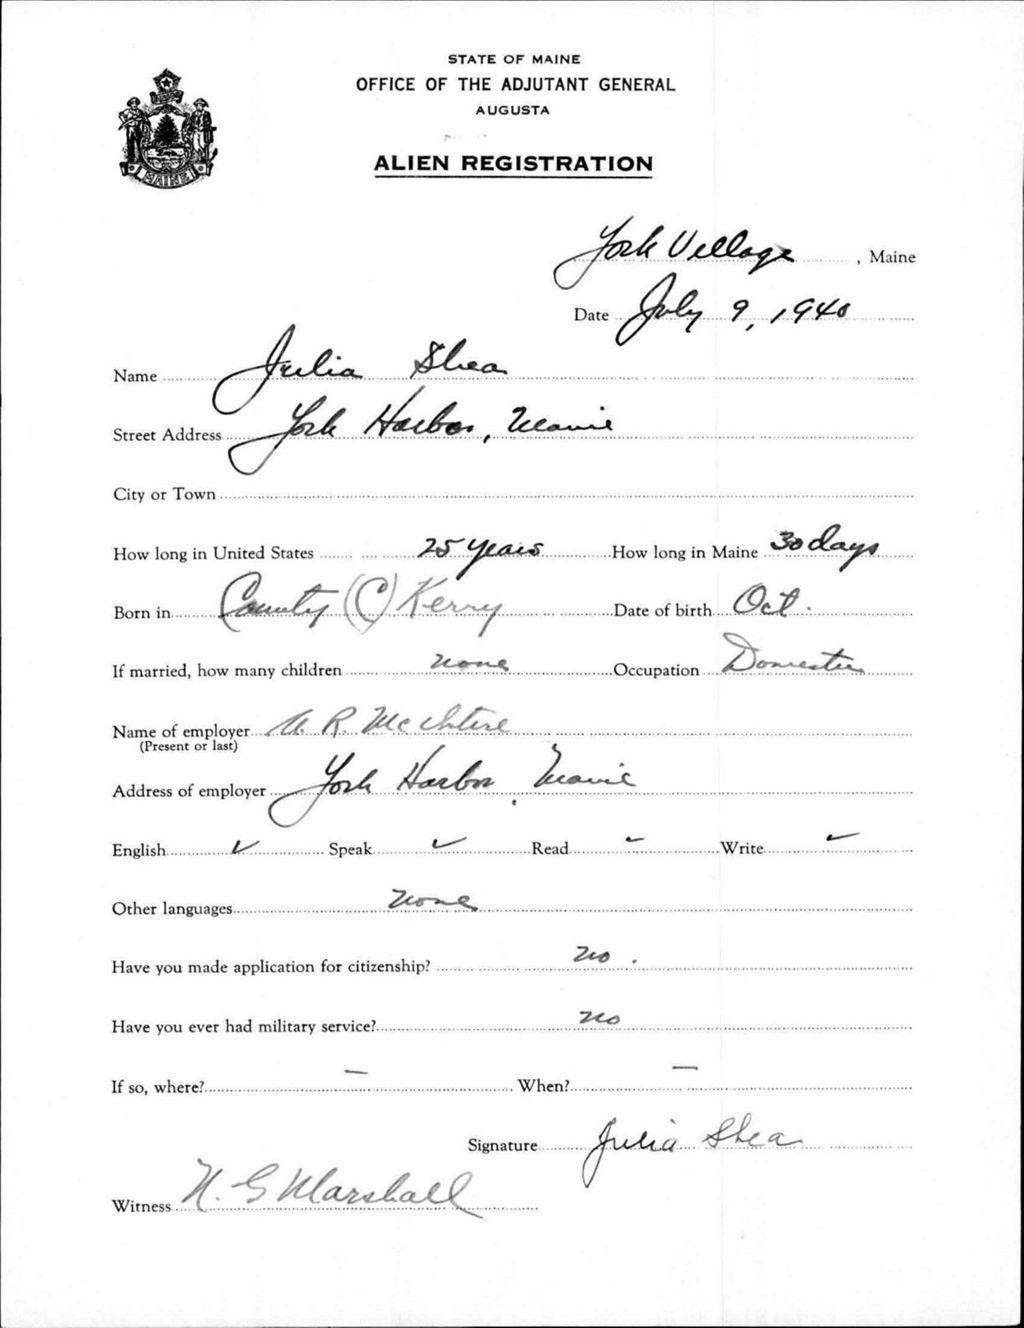 STATE OF MAINE
OFFICE OF THE ADJUTANT GENERAL
AUGUSTA
ALIEN REGISTRATION
MAINE
York Village, Maine
Date July 9, 1940
Name Julia Shea
Street Address York Harbor, Maine
City or Town
How long in United States 25 years How long in Maine 30 days
Born in County (C) Kerry Date of birth Oct.
If married, how many children none Occupation Domestic
Name of employer R. McIntire
(Present or last)
Address of employer York Harbor, Maine
English ✓ Speak ✓ Read ✓ Write ✓
Other languages none
Have you made application for citizenship? no.
Have you ever had military service? no
If so, where? — When? —
Signature Julia Shea
Witness N. G Marshall